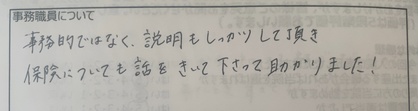 事務職員について
事務的ではなく、説明もしっかりして頂き
保険についても話をきいて下さって助かりました！